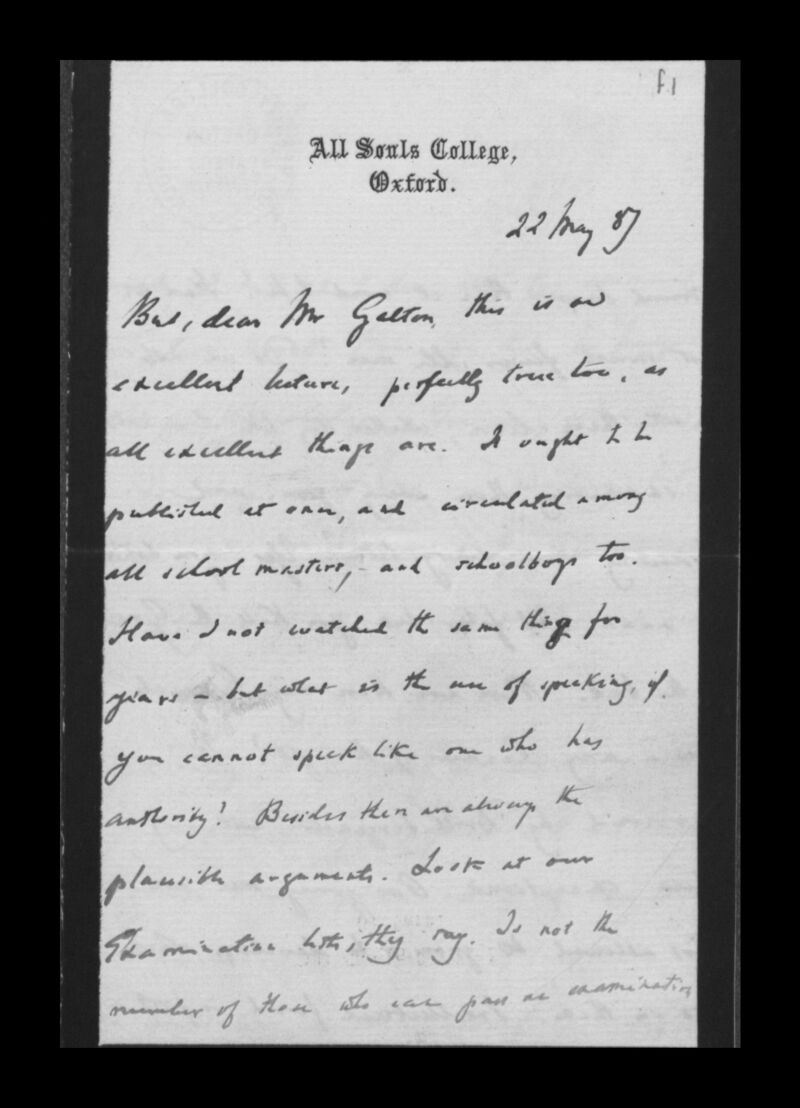 f1
All Souls College,
Oxford.
22 May 87
But, dear Mr Galton, this is an
excellent lecture, perfectly true too, as
all excellent things are. It ought to be
published at once, and circulated among
all school masters, - and schoolboys too.
Have I not watched the same thing for
years - but what is the use of speaking, if
you cannot speak like one who has
authority? Besides there are always the
plausible arguments. Look at our
Examination lists, they say. Is not the
number of those who can pass an examination